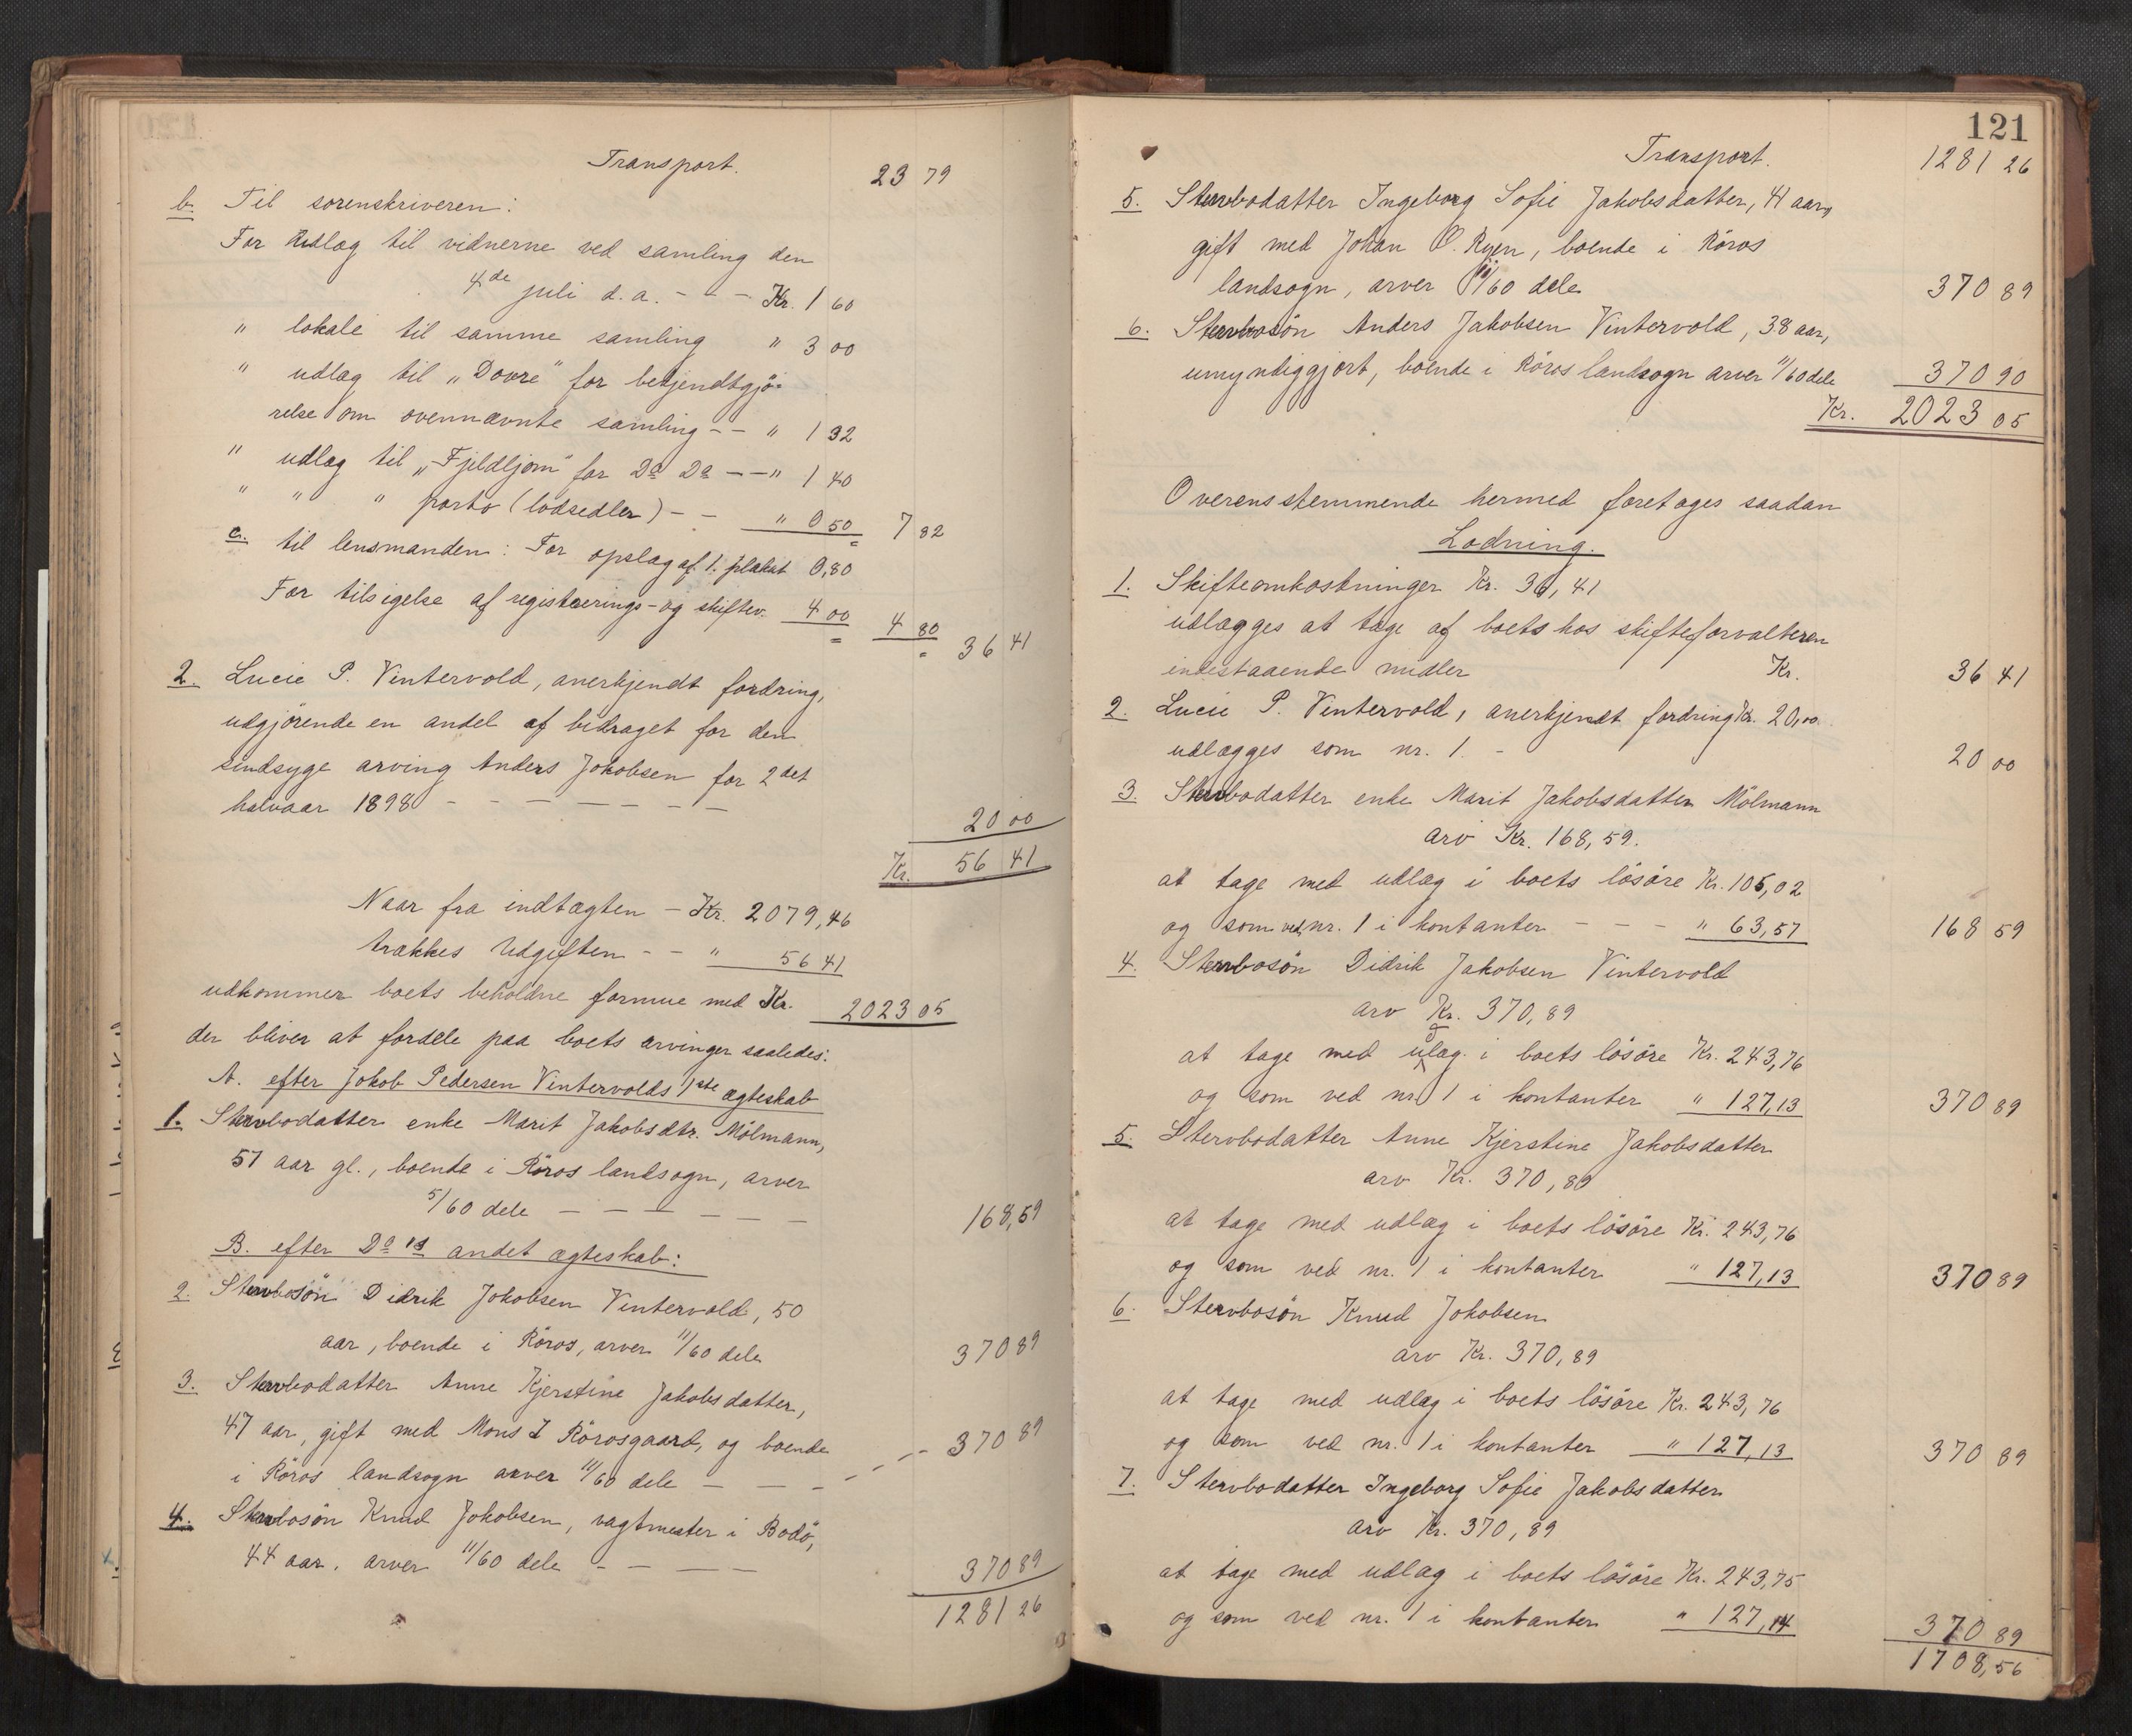 Transport. 23 79
b. Til sorenskriveren:
For Udlæg til vidnerne ved samling den
4de juli d.a. - - - Kr. 1 60
" lokale til samme samling " 3 00
" udlæg til „Dovre" for bekjendtgjö-
relse om ovennævnte samling - - " 1 32
" udlæg til „Fjeldljom" for Do Do - - " 1 40
" " " porto (lodsedler) - - " 0 50 7 82
c. til lensmanden: For opslag af 1. plakat 0,80
For tilsigelse af registrerings- og skiftev. 4 00 4 80 36 41
2. Lucie P. Vintervold, anerkjendt fordring,
udgjörende en andel af bidraget for den
sindsyge arving Anders Jakobsen for 2det
halvaar 1898 - - - - - - - 20 00
Kr. 56 41
Naar fra indtægten - Kr. 2079,46
trækkes Udgiften - - " 56 41
udkommer boets beholdne formue med Kr. 2023 05
der bliver at fordele paa boets arvinger saaledes:
A. efter Jakob Pedersen Vintervolds 1ste ægteskab
1. Stervbodatter enke Marit Jakobsdtr. Mölmann,
57 aar gl., boende i Röros landsogn, arver
5/60 dele - - - - - - 168,59
B. efter Do's andet ægteskab:
2. Stervbosön Didrik Jakobsen Vintervold, 50
aar, boende i Röros, arver 11/60 dele 370 89
3. Stervbodatter Anne Kjerstine Jakobsdatter,
47 aar, gift med Mons I Rörosgaard, og boende
i Röros landsogn arver 11/60 dele - - - - - - 370 89
4. Stervbosön Knud Jakobsen, vagtmester i Bodö,
44 aar. arver 11/60 dele - - - - 370 89
1281 26
121
Transport. 1281 26
5. Stervbodatter Ingeborg Sofie Jakobsdatter, 41 aar,
gift med Johan O. Ryen, boende i Röros
landsogn, arver 11/60 dele 370 89
6. Stervbosön Anders Jakobsen Vintervold, 38 aar,
umyndiggjort, boende i Röros landsogn arver 11/60 dele 370 90
Kr. 2023 05
Overensstemmende hermed foretages saadan
Lodning.
1. Skifteomkostninger Kr. 36,41
udlægges at tage af boets hos skifteforvalteren
indestaaende midler Kr. 36 41
2. Lucie P. Vintervold, anerkjendt fordring Kr. 20,00
udlægges som nr. 1. - 20 00
3. Stervbodatter enke Marit Jakobsdatter Mölmann
arv Kr. 168,59.
at tage med udlæg i boets lösöre Kr. 105,02
og som ved nr. 1 i kontanter - - - " 63,57 168 59
4. Stervbosön Didrik Jakobsen Vintervold
arv Kr. 370,89
at tage med udlæg i boets lösöre Kr. 243,76
og som ved nr. 1 i kontanter " 127,13 370 89
5. Stervbodatter Anne Kjerstine Jakobsdatter
arv Kr. 370,89
at tage med udlæg i boets lösöre Kr. 243,76
og som ved nr. 1 i kontanter " 127,13 370 89
6. Stervbosön Knud Jakobsen
arv Kr. 370,89
at tage med udlæg i boets lösöre Kr. 243,76
og som ved nr. 1 i kontanter " 127,13 370 89
7. Stervbodatter Ingeborg Sofie Jakobsdatter
arv Kr. 370,89
at tage med udlæg i boets lösöre Kr. 243,75
og som ved nr. 1 i kontanter " 127,14 370 89
1708,56